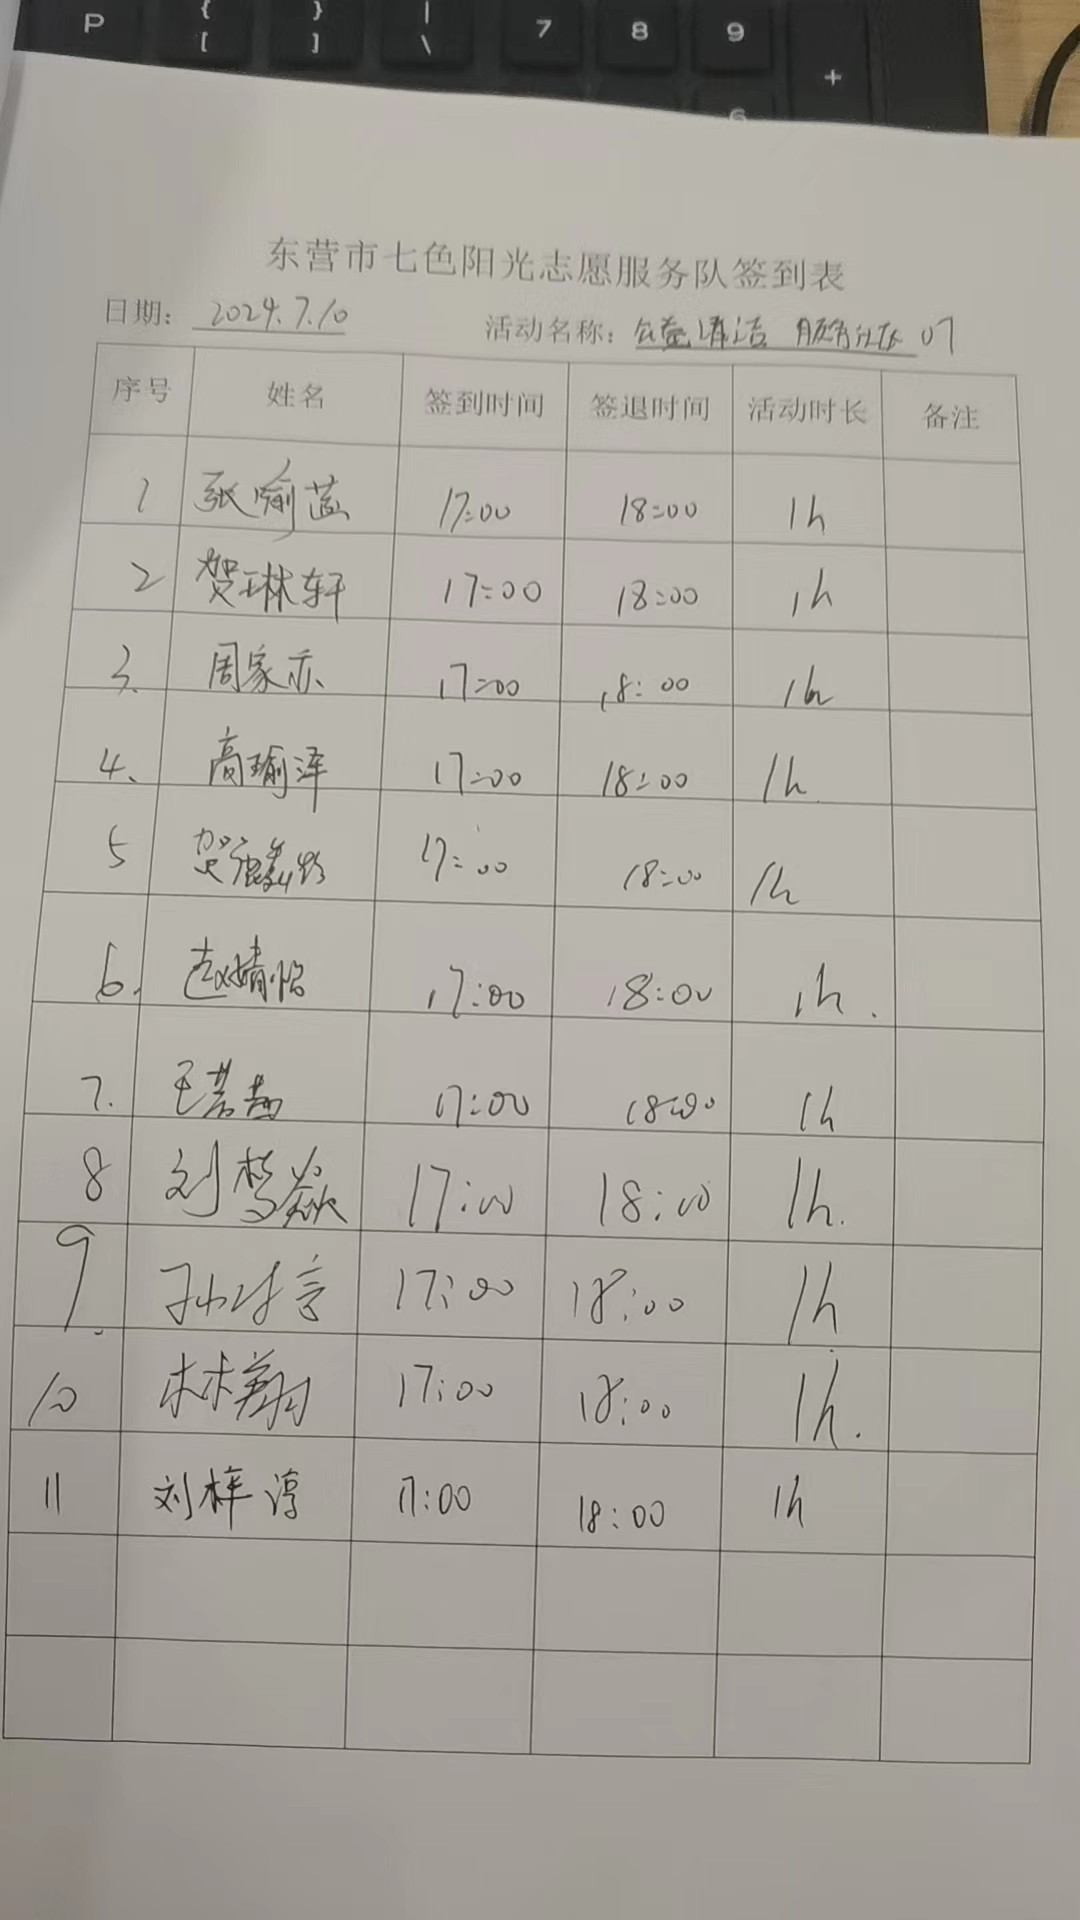 P { [ } ] | \ 7 8 9 +
6
东营市七色阳光志愿服务队签到表
日期: 2024.7.10 活动名称: 公益清洁 服务社区 07
序号 姓名 签到时间 签退时间 活动时长 备注
1 张喻蓝 17:00 18:00 1h
2 贺琳轩 17:00 18:00 1h
3. 周家亦 17:00 18:00 1h
4、 高瑜泽 17:00 18:00 1h
5 贺 17:00 18:00 1h
6. 赵婧怡 17:00 18:00 1h.
7. 王 17:00 18:00 1h
8 刘梦焱 17:00 18:00 1h.
9. 孙 言 17:00 18:00 1h
10 林翔 17:00 18:00 1h.
11 刘梓淳 17:00 18:00 1h